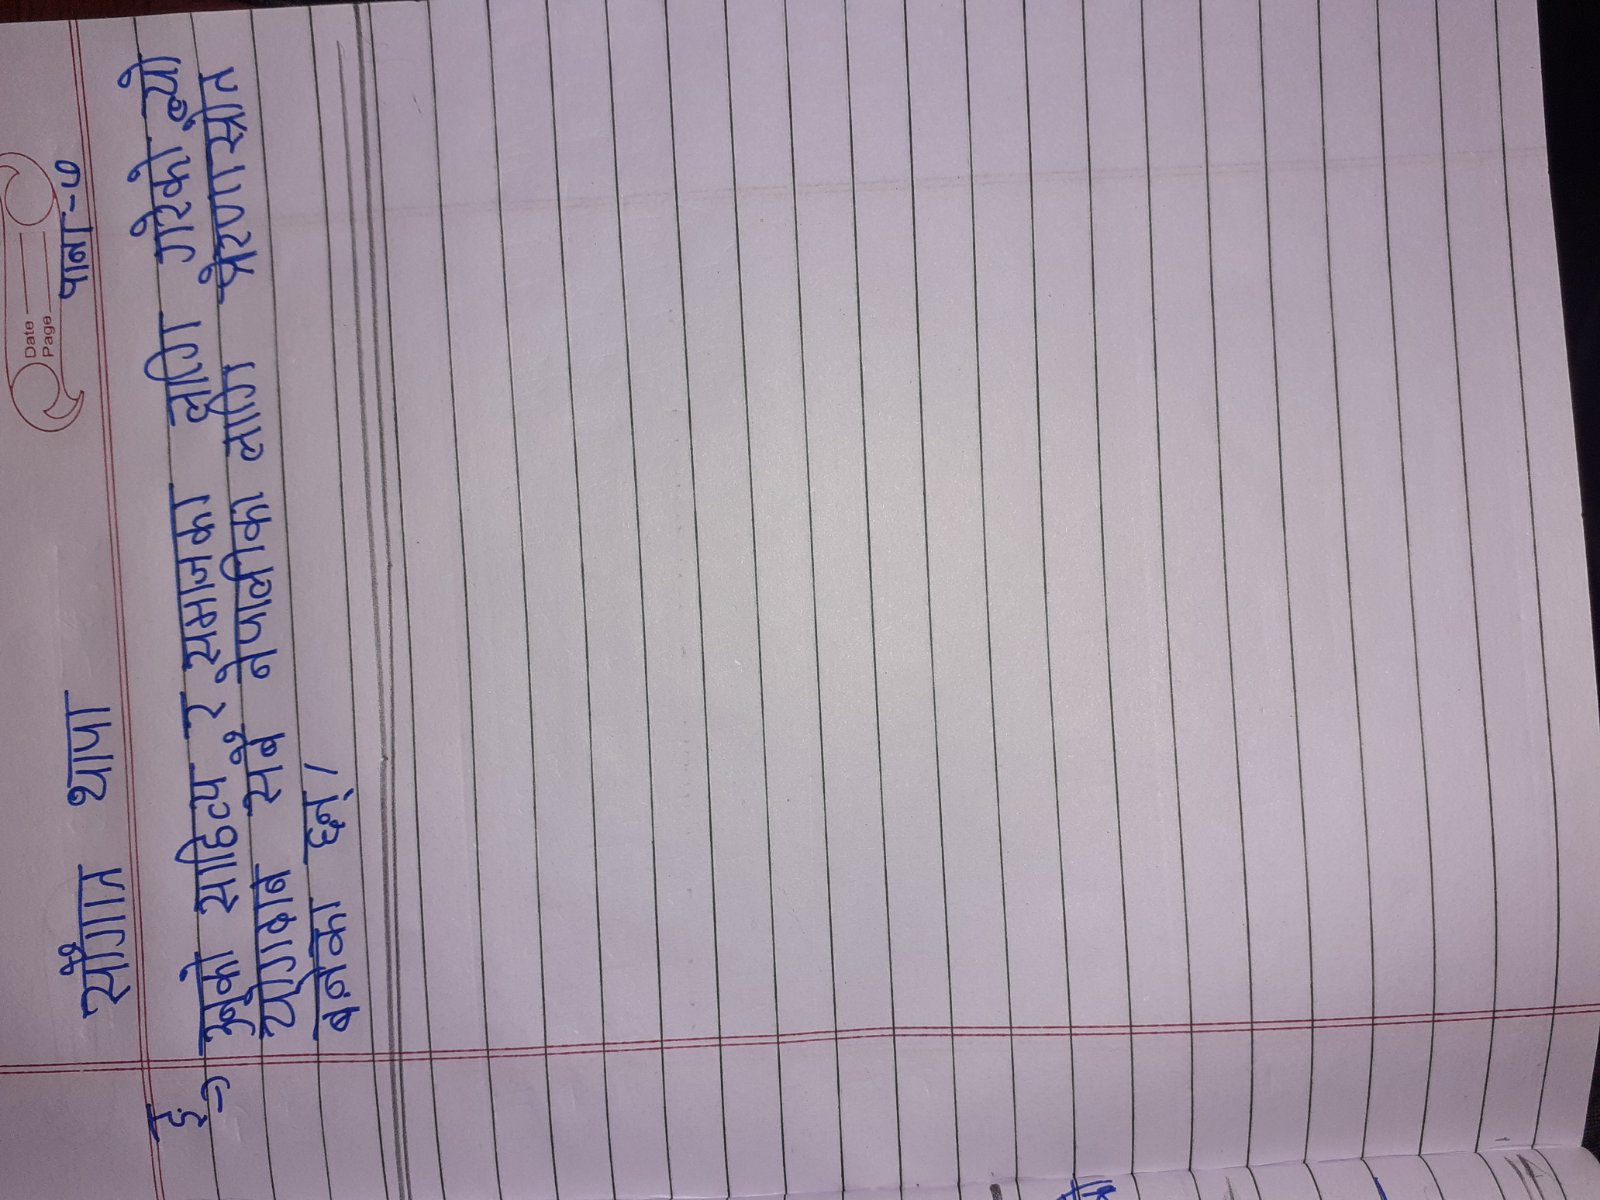 Date
Page
पाना-७
सौगात थापा
ई → उनको साहित्य र समाजका लागि गरेको त्यो
योगदान सबै नेपालीका लागि प्रेरणास्रोत
बनेका छन्।